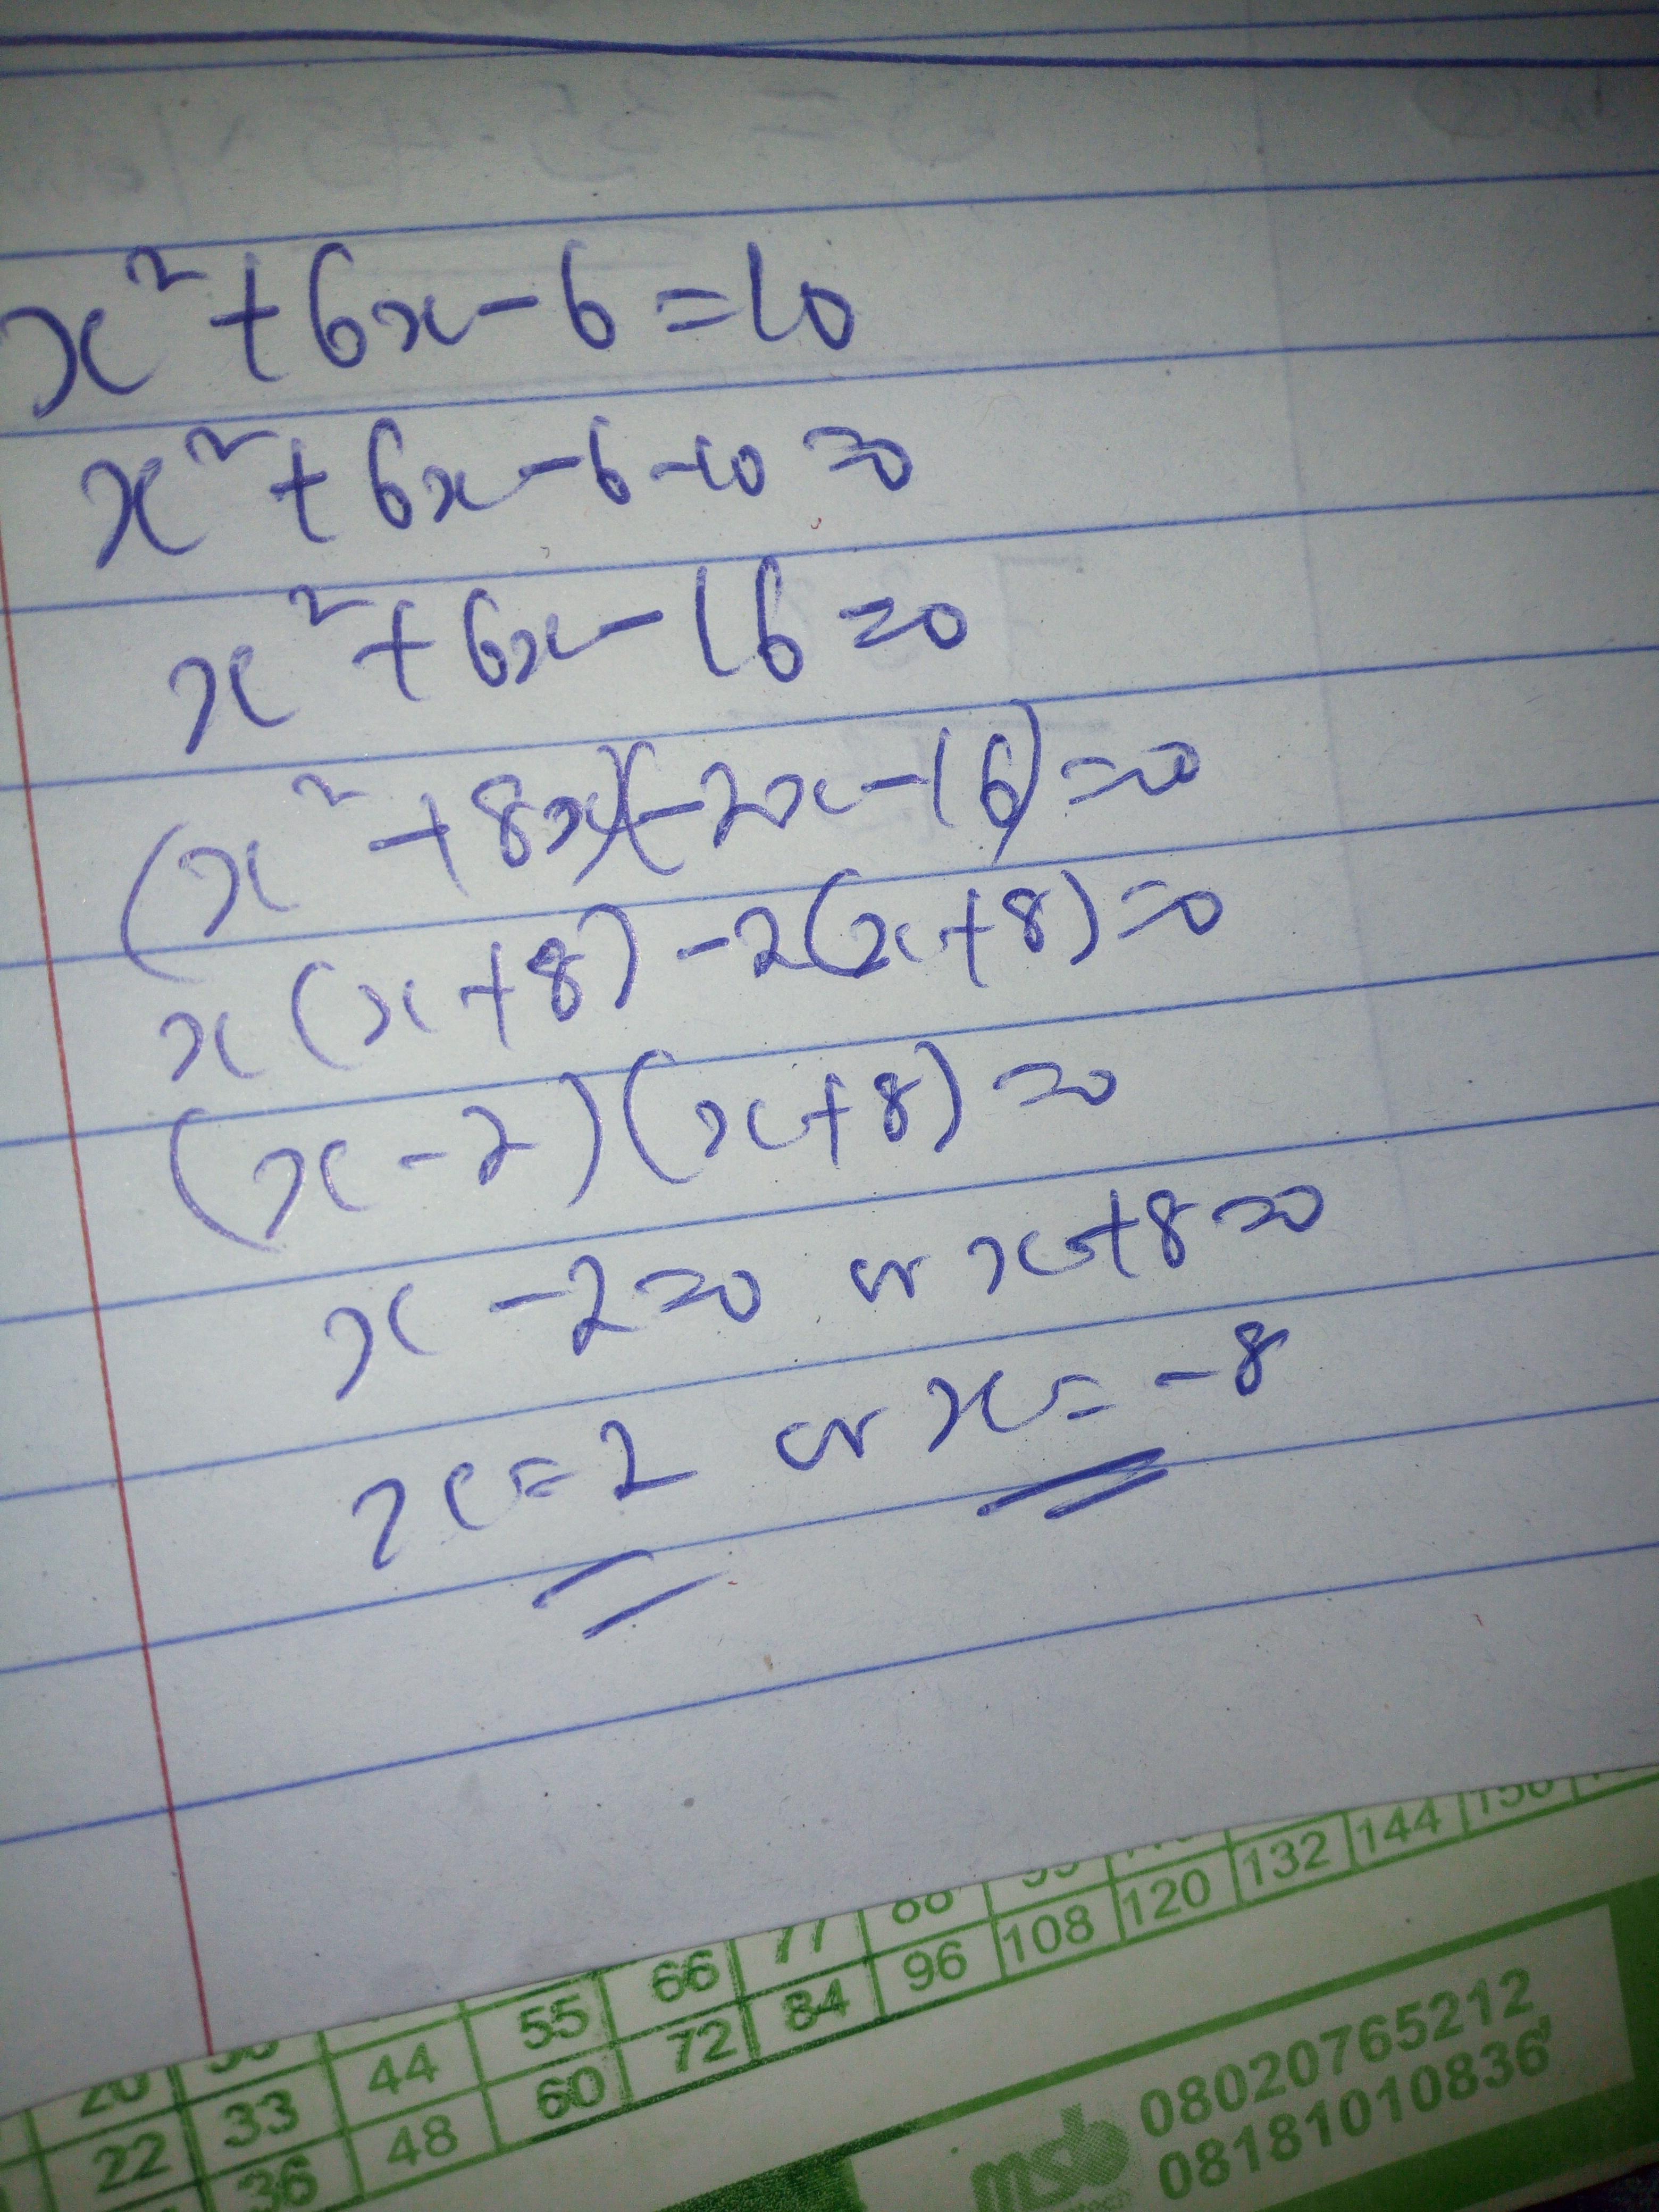 x²+6x-6=10
x²+6x-6-10=0
x²+6x-16=0
(x²+8x)(-2x-16)=0
x(x+8)-2(x+8)=0
(x-2)(x+8)=0
x-2=0 or x+8=0
x=2 or x=-8
55 66 77 88 99
22 33 44
36 48 60 72 84 96 108 120 132 144
msb
08020765212
08181010836